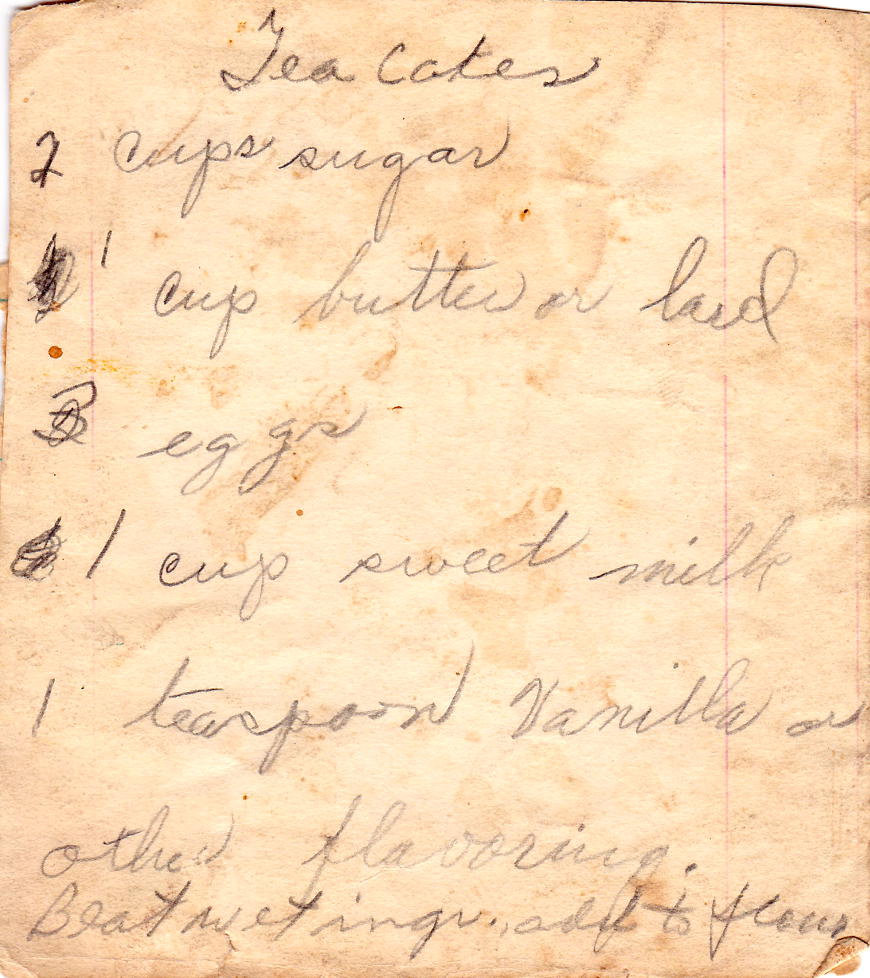 Tea Cakes
2 cups sugar
1 cup butter or lard
3 eggs
1 cup sweet milk
1 teaspoon Vanilla or
other flavoring.
Beat wet ingr., add to flour